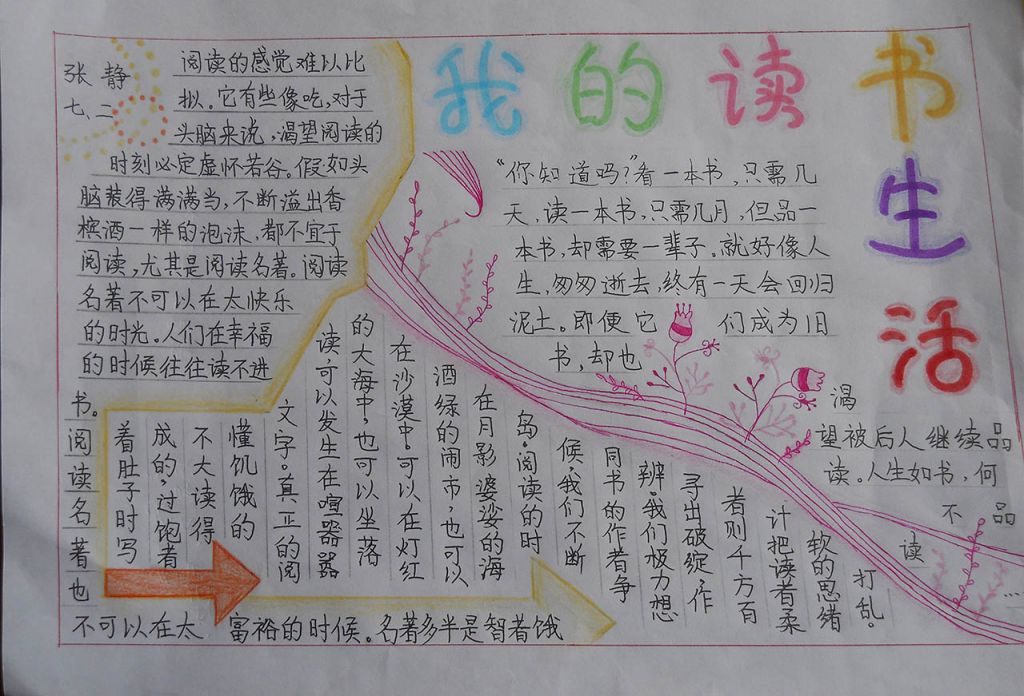 我的读书
生
活
张静
七、二
阅读的感觉难以比
拟。它有些像吃,对于
头脑来说,渴望阅读的
时刻必定虚怀若谷。假如头
脑装得满满当,不断溢出香
槟酒一样的泡沫,都不宜于
阅读,尤其是阅读名著。阅读
名著不可以在太快乐
的时光。人们在幸福
的时候往往读不进
书。阅读名著也
不可以在太 富裕的时候。名著多半是智者饿
着肚子时写
成的,过饱者
不大读得
懂饥饿的
文字。真正的阅
读,可以发生在喧器器
的大海中,也可以坐落
在沙漠中,可以在灯红
酒绿的闹市,也可以
在月影婆娑的海
岛。阅读的时
候,我们不断
同书的作者争
辨。我们极力想
寻出破绽,作
者则千方百
计把读者柔
软的思绪
打乱。
“你知道吗?”看一本书,只需几
天,读一本书,只需几月,但品一
本书,却需要一辈子。就好像人
生,匆匆逝去,终有一天会回归
泥土。即使它 们成为旧
书,却也 渴
望被后人继续品
读。人生如书,何
不品
读
…